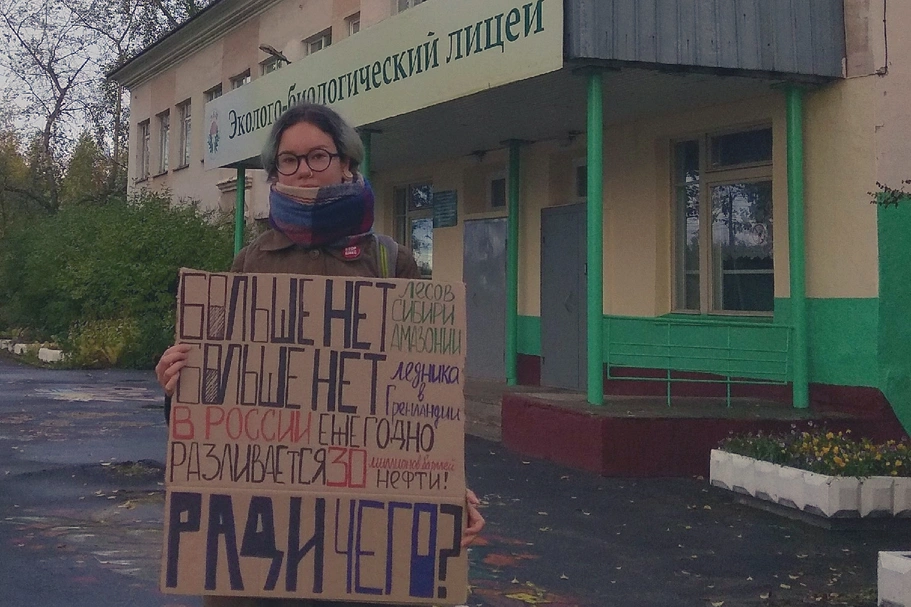 Эколого-биологический лицей
БОЛЬШЕ НЕТ ЛЕСОВ
СИБИРИ
АМАЗОНИИ
БОЛЬШЕ НЕТ ледника
в
Гренландии
В РОССИИ ЕЖЕГОДНО
РАЗЛИВАЕТСЯ 30 миллионов баррелей
НЕФТИ!
РАДИ ЧЕГО?